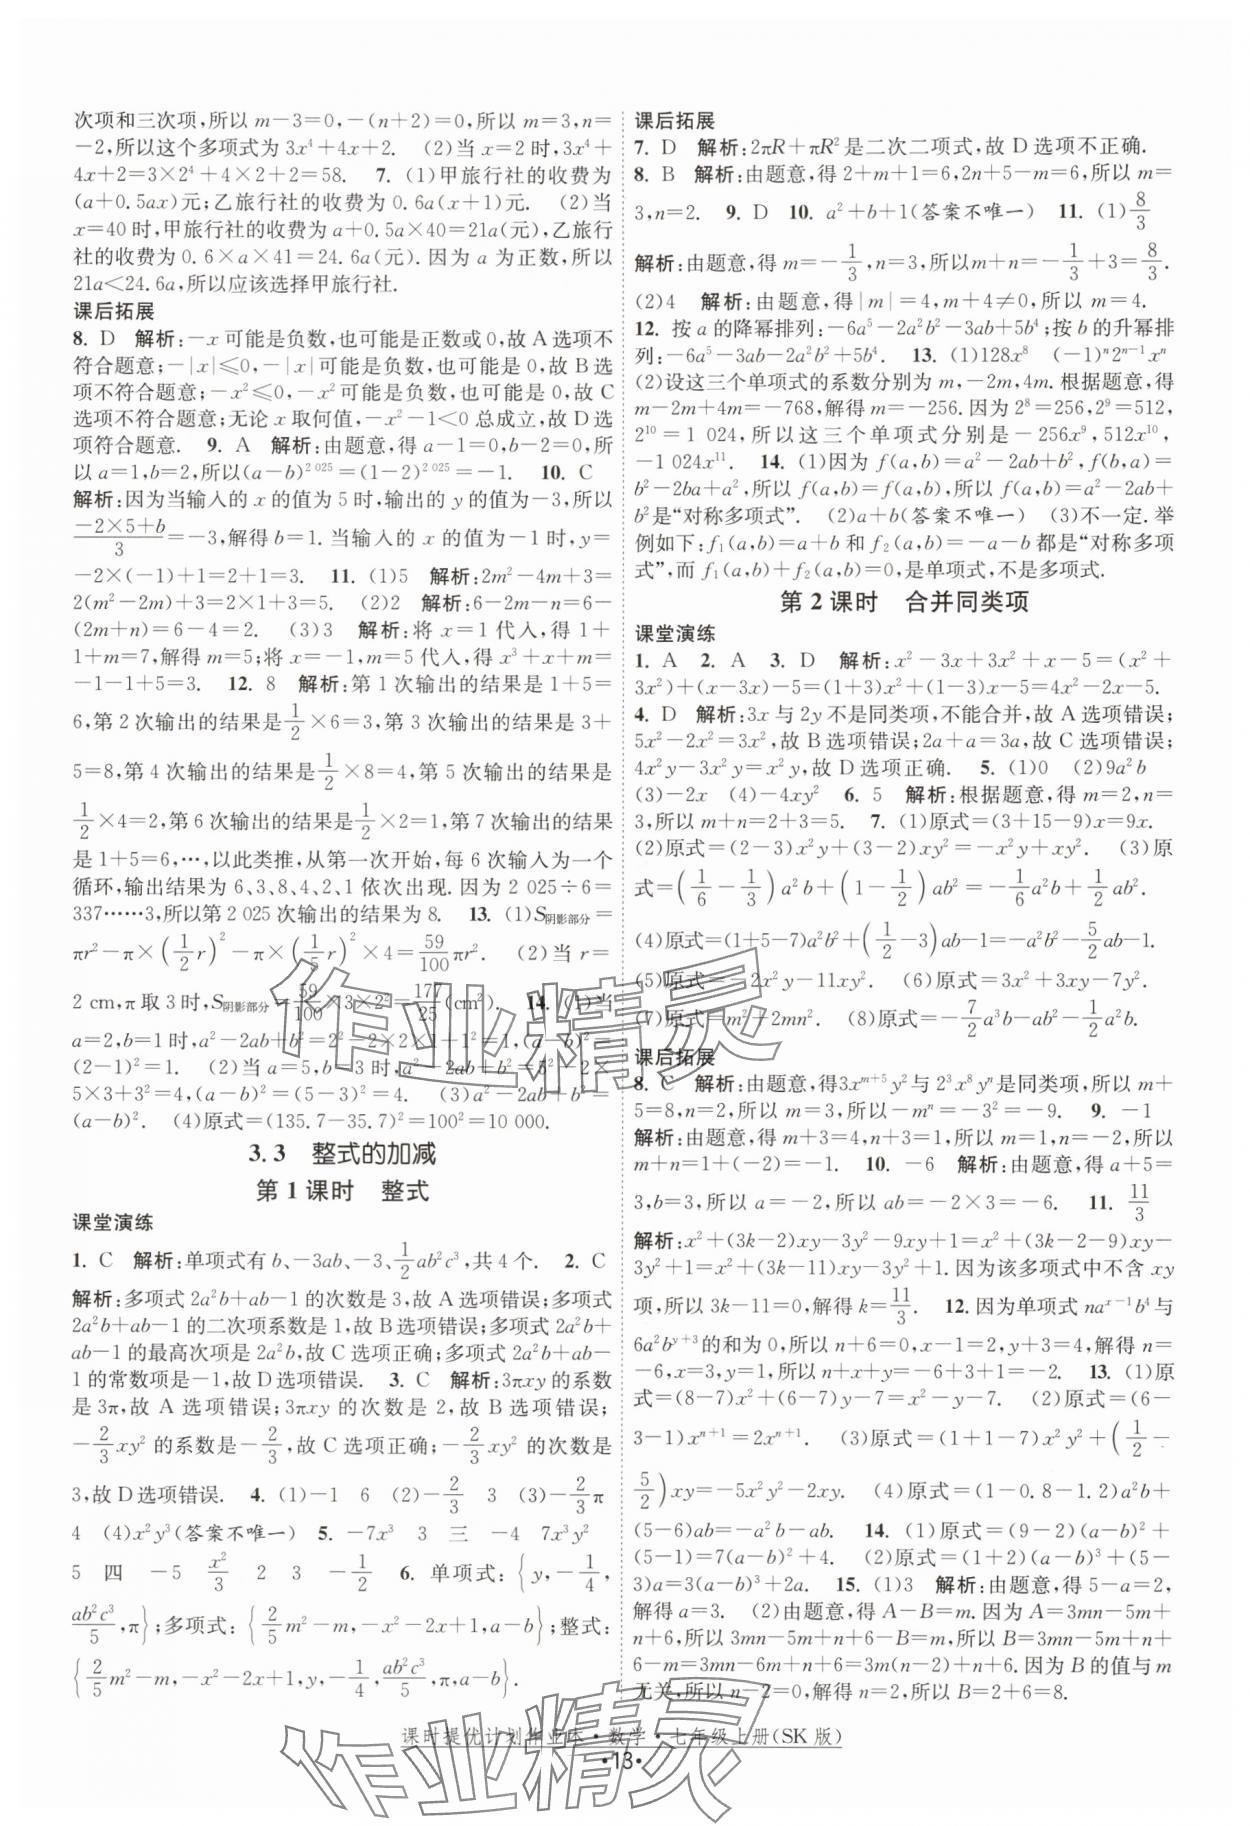 次项和三次项,所以 m-3=0,-(n+2)=0,所以 m=3,n=
-2,所以这个多项式为 3x⁴+4x+2. (2)当 x=2 时,3x⁴+
4x+2=3×2⁴+4×2+2=58. 7. (1)甲旅行社的收费为
(a+0.5ax)元;乙旅行社的收费为 0.6a(x+1)元. (2)当
x=40 时,甲旅行社的收费为 a+0.5a×40=21a(元),乙旅行
社的收费为 0.6×a×41=24.6a(元). 因为 a 为正数,所以
21a<24.6a,所以应该选择甲旅行社.
课后拓展
8. D 解析:-x 可能是负数,也可能是正数或 0,故 A 选项不
符合题意;-|x|≤0,-|x|可能是负数,也可能是 0,故 B 选
项不符合题意;-x²≤0,-x²可能是负数,也可能是 0,故 C
选项不符合题意;无论 x 取何值,-x²-1<0 总成立,故 D 选
项符合题意. 9. A 解析:由题意,得 a-1=0,b-2=0,所
以 a=1,b=2,所以(a-b)²⁰²⁵=(1-2)²⁰²⁵=-1. 10. C
解析:因为当输入的 x 的值为 5 时,输出的 y 的值为-3,所以
(-2×5+b)/3=-3,解得 b=1. 当输入的 x 的值为-1 时,y=
-2×(-1)+1=2+1=3. 11. (1)5 解析:2m²-4m+3=
2(m²-2m)+3=2+3=5. (2)2 解析:6-2m-2n=6-
(2m+n)=6-4=2. (3)3 解析:将 x=1 代入,得 1+
1+m=7,解得 m=5;将 x=-1,m=5 代入,得 x³+x+m=
-1-1+5=3. 12. 8 解析:第 1 次输出的结果是 1+5=
6,第 2 次输出的结果是 1/2×6=3,第 3 次输出的结果是 3+
5=8,第 4 次输出的结果是 1/2×8=4,第 5 次输出的结果是
1/2×4=2,第 6 次输出的结果是 1/2×2=1,第 7 次输出的结果
是 1+5=6,…,以此类推,从第一次开始,每 6 次输入为一个
循环,输出结果为 6、3、8、4、2、1 依次出现. 因为 2 025÷6=
337……3,所以第 2 025 次输出的结果为 8. 13. (1)S阴影部分=
πr²-π×(1/2 r)²-π×(1/5 r)²×4=59/100 πr². (2)当 r=
2 cm,π取 3 时,S阴影部分=59/100×3×2²=177/25(cm²). 14. (1)当
a=2,b=1时,a²-2ab+b²=2²-2×2×1+1²=1,(a-b)²=
(2-1)²=1. (2)当 a=5,b=3 时,a²-2ab+b²=5²-2×
5×3+3²=4,(a-b)²=(5-3)²=4. (3)a²-2ab+b²=
(a-b)². (4)原式=(135.7-35.7)²=100²=10 000.
3.3 整式的加减
第 1 课时 整式
课堂演练
1. C 解析:单项式有 b、-3ab、-3、1/2 ab²c³,共 4 个. 2. C
解析:多项式 2a²b+ab-1 的次数是 3,故 A 选项错误;多项式
2a²b+ab-1 的二次项系数是 1,故 B 选项错误;多项式 2a²b+
ab-1 的最高次项是 2a²b,故 C 选项正确;多项式 2a²b+ab-
1 的常数项是-1,故 D 选项错误. 3. C 解析:3πxy 的系数
是 3π,故 A 选项错误;3πxy 的次数是 2,故 B 选项错误;
-2/3 xy² 的系数是-2/3,故 C 选项正确;-2/3 xy² 的次数是
3,故 D 选项错误. 4. (1)-1 6 (2)-2/3 3 (3)-2/3 π
4 (4)x²y³(答案不唯一) 5. -7x³ 3 三 -4 7x³y²
5 四 -5 x²/3 2 3 -1/2 6. 单项式:{y,-1/4,
ab²c³/5,π};多项式:{2/5 m²-m,-x²-2x+1,a-b};整式:
{2/5 m²-m,-x²-2x+1,y,-1/4,ab²c³/5,π,a-b}.
课后拓展
7. D 解析:2πR+πR²是二次二项式,故 D 选项不正确.
8. B 解析:由题意,得 2+m+1=6,2n+5-m=6,所以 m=
3,n=2. 9. D 10. a²+b+1(答案不唯一) 11. (1)8/3
解析:由题意,得 m=-1/3,n=3,所以 m+n=-1/3+3=8/3.
(2)4 解析:由题意,得|m|=4,m+4≠0,所以 m=4.
12. 按 a 的降幂排列:-6a⁵-2a²b²-3ab+5b⁴;按 b 的升幂排
列:-6a⁵-3ab-2a²b²+5b⁴. 13. (1)128x⁸ (-1)ⁿ2ⁿ⁻¹xⁿ
(2)设这三个单项式的系数分别为 m,-2m,4m. 根据题意,得
m-2m+4m=-768,解得 m=-256. 因为 2⁸=256,2⁹=512,
2¹⁰=1 024,所以这三个单项式分别是-256x⁹,512x¹⁰,
-1 024x¹¹. 14. (1)因为 f(a,b)=a²-2ab+b²,f(b,a)=
b²-2ba+a²,所以 f(a,b)=f(b,a),所以 f(a,b)=a²-2ab+
b²是“对称多项式”. (2)a+b(答案不唯一) (3)不一定. 举
例如下:f₁(a,b)=a+b 和 f₂(a,b)=-a-b 都是“对称多项
式”,而 f₁(a,b)+f₂(a,b)=0,是单项式,不是多项式.
第 2 课时 合并同类项
课堂演练
1. A 2. A 3. D 解析:x²-3x+3x²+x-5=(x²+
3x²)+(x-3x)-5=(1+3)x²+(1-3)x-5=4x²-2x-5.
4. D 解析:3x 与 2y 不是同类项,不能合并,故 A 选项错误;
5x²-2x²=3x²,故 B 选项错误;2a+a=3a,故 C 选项错误;
4x²y-3x²y=x²y,故 D 选项正确. 5. (1)0 (2)9a²b
(3)-2x (4)-4xy² 6. 5 解析:根据题意,得 m=2,n=
3,所以 m+n=2+3=5. 7. (1)原式=(3+15-9)x=9x.
(2)原式=(2-3)x²y+(3-2)xy²=-x²y+xy². (3)原
式=(1/6-1/3)a²b+(1-1/2)ab²=-1/6 a²b+1/2 ab².
(4)原式=(1+5-7)a²b²+(1/2-3)ab-1=-a²b²-5/2 ab-1.
(5)原式=-2x²y-11xy². (6)原式=3x²+3xy-7y².
(7)原式=m²+2mn². (8)原式=-7/2 a³b-ab²-1/2 a²b.
课后拓展
8. C 解析:由题意,得3xᵐ⁺⁵y²与 2³x⁸yⁿ是同类项,所以 m+
5=8,n=2,所以 m=3,所以-mⁿ=-3²=-9. 9. -1
解析:由题意,得 m+3=4,n+3=1,所以 m=1,n=-2,所以
m+n=1+(-2)=-1. 10. -6 解析:由题意,得 a+5=
3,b=3,所以 a=-2,所以 ab=-2×3=-6. 11. 11/3
解析:x²+(3k-2)xy-3y²-9xy+1=x²+(3k-2-9)xy-
3y²+1=x²+(3k-11)xy-3y²+1. 因为该多项式中不含 xy
项,所以 3k-11=0,解得 k=11/3. 12. 因为单项式 naˣ⁻¹b⁴与
6a²bʸ⁺³的和为 0,所以 n+6=0,x-1=2,y+3=4,解得 n=
-6,x=3,y=1,所以 n+x+y=-6+3+1=-2. 13. (1)原
式=(8-7)x²+(6-7)y-7=x²-y-7. (2)原式=(6-
3-1)xⁿ⁺¹=2xⁿ⁺¹. (3)原式=(1+1-7)x²y²+(1/2-
5/2)xy=-5x²y²-2xy. (4)原式=(1-0.8-1.2)a²b+
(5-6)ab=-a²b-ab. 14. (1)原式=(9-2)(a-b)²+
(5-1)=7(a-b)²+4. (2)原式=(1+2)(a-b)³+(5-
3)a=3(a-b)³+2a. 15. (1)3 解析:由题意,得 5-a=2,
解得 a=3. (2)由题意,得 A-B=m. 因为 A=3mn-5m+
n+6,所以 3mn-5m+n+6-B=m,所以 B=3mn-5m+n+
6-m=3mn-6m+n+6=3m(n-2)+n+6. 因为 B 的值与 m
无关,所以 n-2=0,解得 n=2,所以 B=2+6=8.
课时提优计划作业本·数学·七年级上册(SK 版)
·13·
作业精灵
作业精灵